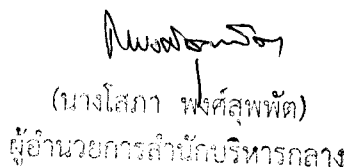 (นางโสภา พงศ์สุพพัต)
ผู้อำนวยการสำนักบริหารกลาง